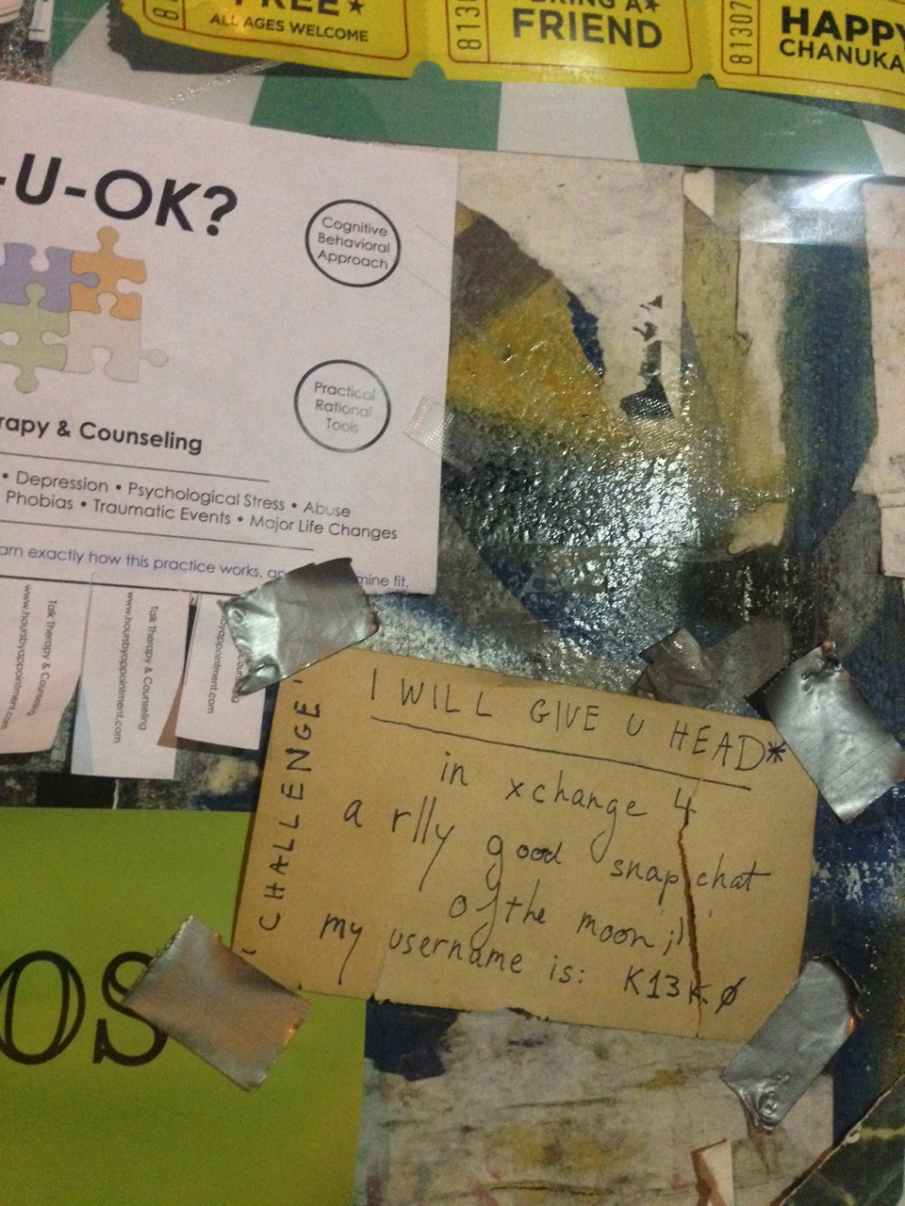 FREE★
ALL AGES WELCOME
8130
BRING A★
FRIEND
81307
HAPPY
CHANUKA
-U-OK?
Cognitive
Behavioral
Approach
Practical
Rational
Tools
rapy & Counseling
• Depression • Psychological Stress • Abuse
Phobias • Traumatic Events • Major Life Changes
arn exactly how this practice works, an mine fit.
Talk Therapy & Counseling
www.hoursbyappointment.com
Talk Therapy & Counseling
www.hoursbyappointment.com
byappointment.com
'CHALLENGE'
I WILL GIVE U HEAD*
in xchange 4
a rlly good snapchat
of the moon ;)
my username is: K13K.Ø
OS